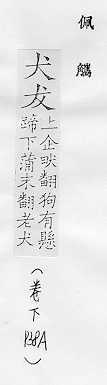 佩觿
犬犮
上企畎翻狗有懸
蹄下蒲末翻老犬
(卷下 P38A)